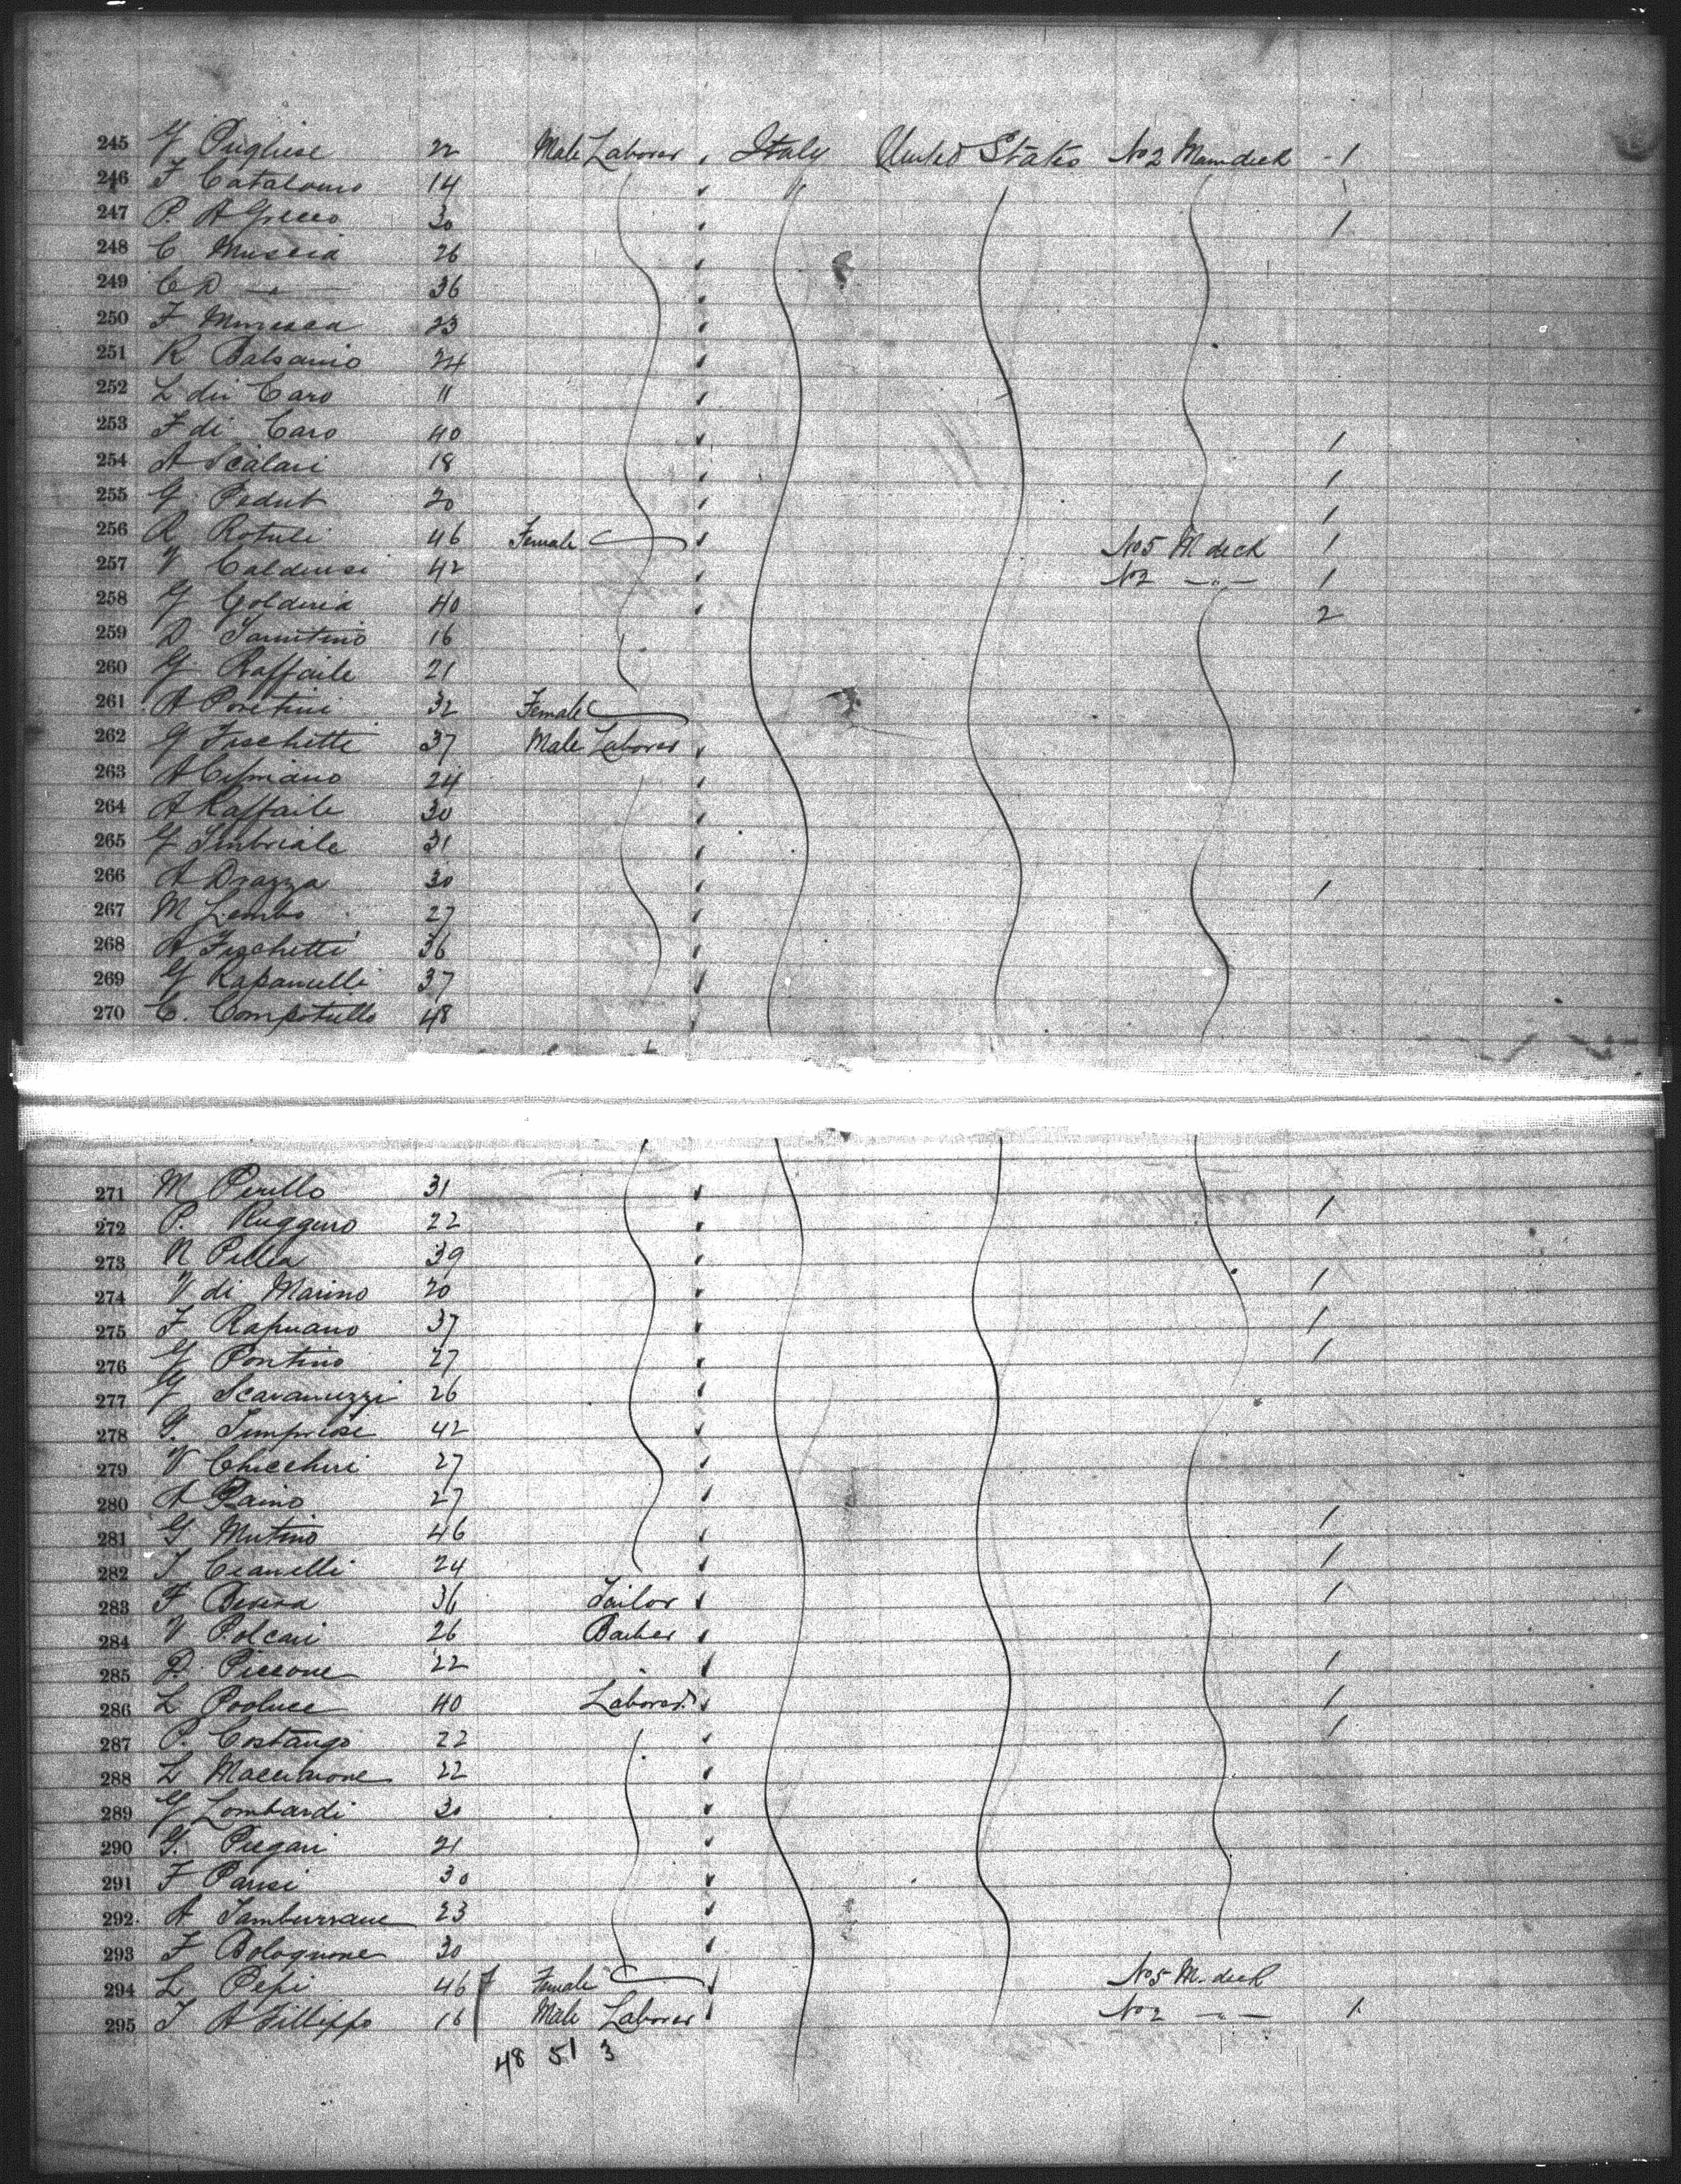 245 G Pugliese 22 Male Laborer Italy United States No 2 Maindeck - 1
246 F Catalono 14 " \
247 P. A Grecco 30 1
248 C Muscia 26
249 C D — " — 36
250 F 23
251 R Balsamo 24
252 L di Caro 11
253 F di Caro 40 1
254 A Scalari 18 1
255 G Padut 20 1
256 R Rotuli 46 Female No 5 M deck 1
257 V 42 No 2 — " — 1
258 G 40 2
259 D 16
260 G Raffaile 21
261 A Pontini 32 Female
262 G Fischetti 37 Male Laborer
263 A Cipriano 24
264 A Raffaile 30
265 G 31
266 A Drazza 30 1
267 M Lembo 27
268 A Fischetti 36
269 G Rapanelli 37
270 C. Compotello 48
271 M Perillo 31
272 P. Ruggero 22 1
273 N Pillea 39
274 V di Marino 20 1
275 F Rapuano 37 1
276 G Pontino 27 1
277 G Scaranuzzi 26
278 G. 42
279 V Chicchiri 27
280 A Raino 27
281 G Mutino 46 1
282 F Cianelli 24 1
283 F 36 Tailor 1
284 V Polcari 26 Barber
285 D. Piccone 22 1
286 L Pooluce 40 Laborer 1
287 P. Costango 22 1
288 L Maccarone 22
289 G Lombardi 30
290 G. Piegari 21
291 F Parisi 30
292. A Tamburrane 23
293 F Bolognone 30
294 L Pepi 46 Female No 5 M. deck
295 F A Fillippo 16 Male Laborer No 2 — " — 1
48 51 3